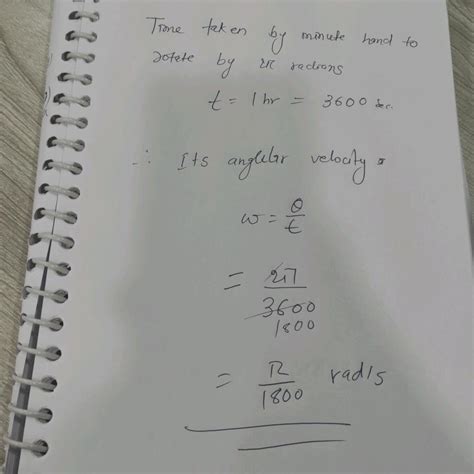 Time taken by minute hand to
rotate by 2π radians
t = 1 hr = 3600 sec.
∴ Its angular velocity
ω = θ/t
= 2π/3600
1800
= π/1800 rad/s